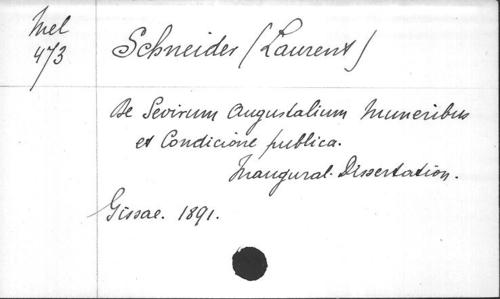 Mel
473
Schneider (Laurenz)
De Sevirum Augustalium Muneribus
et Condicione publica.
Inaugural-Dissertation.
Gissae. 1891.